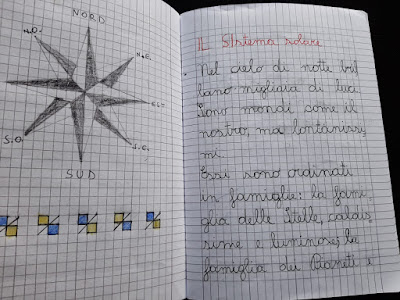 NORD
N.O.
N.E.
S.O.
S.E.
SUD
IL SIstema solare
Nel cielo di notte bril
lano migliaia di luci.
Sono mondi come il
nostro, ma lontanissi
mi.
Essi sono ordinati
in famiglie: la fami
glia delle stelle, caldis
sime e luminose, la
famiglia dei Pianeti e